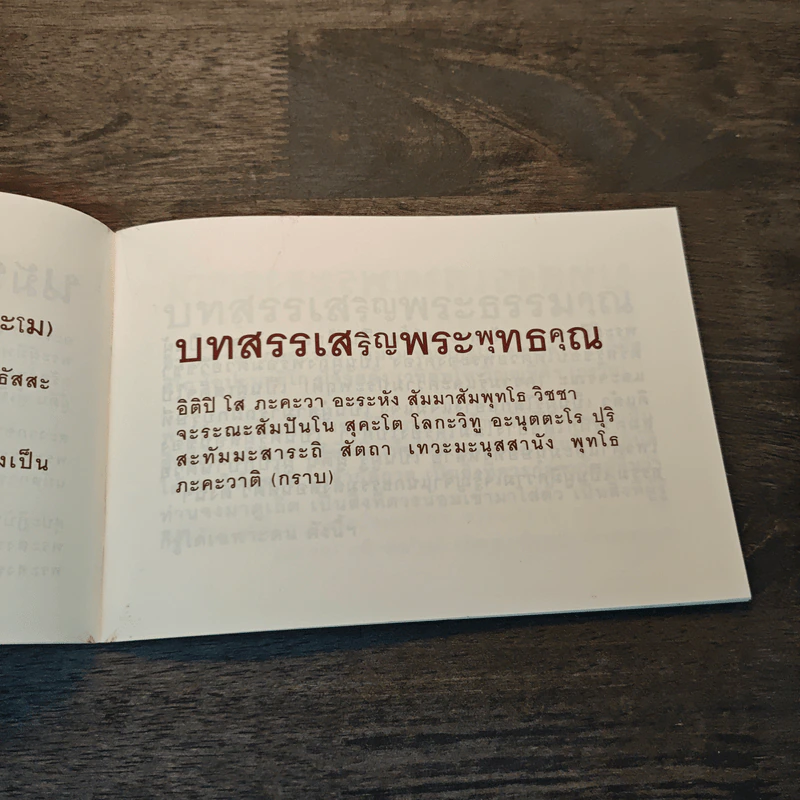 ะโม)
ธัสสะ
งเป็น
บทสรรเสริญพระพุทธคุณ
อิติปิ โส ภะคะวา อะระหัง สัมมาสัมพุทโธ วิชชา
จะระณะสัมปันโน สุคะโต โลกะวิทู อะนุตตะโร ปุริ
สะทัมมะสาระถิ สัตถา เทวะมะนุสสานัง พุทโธ
ภะคะวาติ (กราบ)